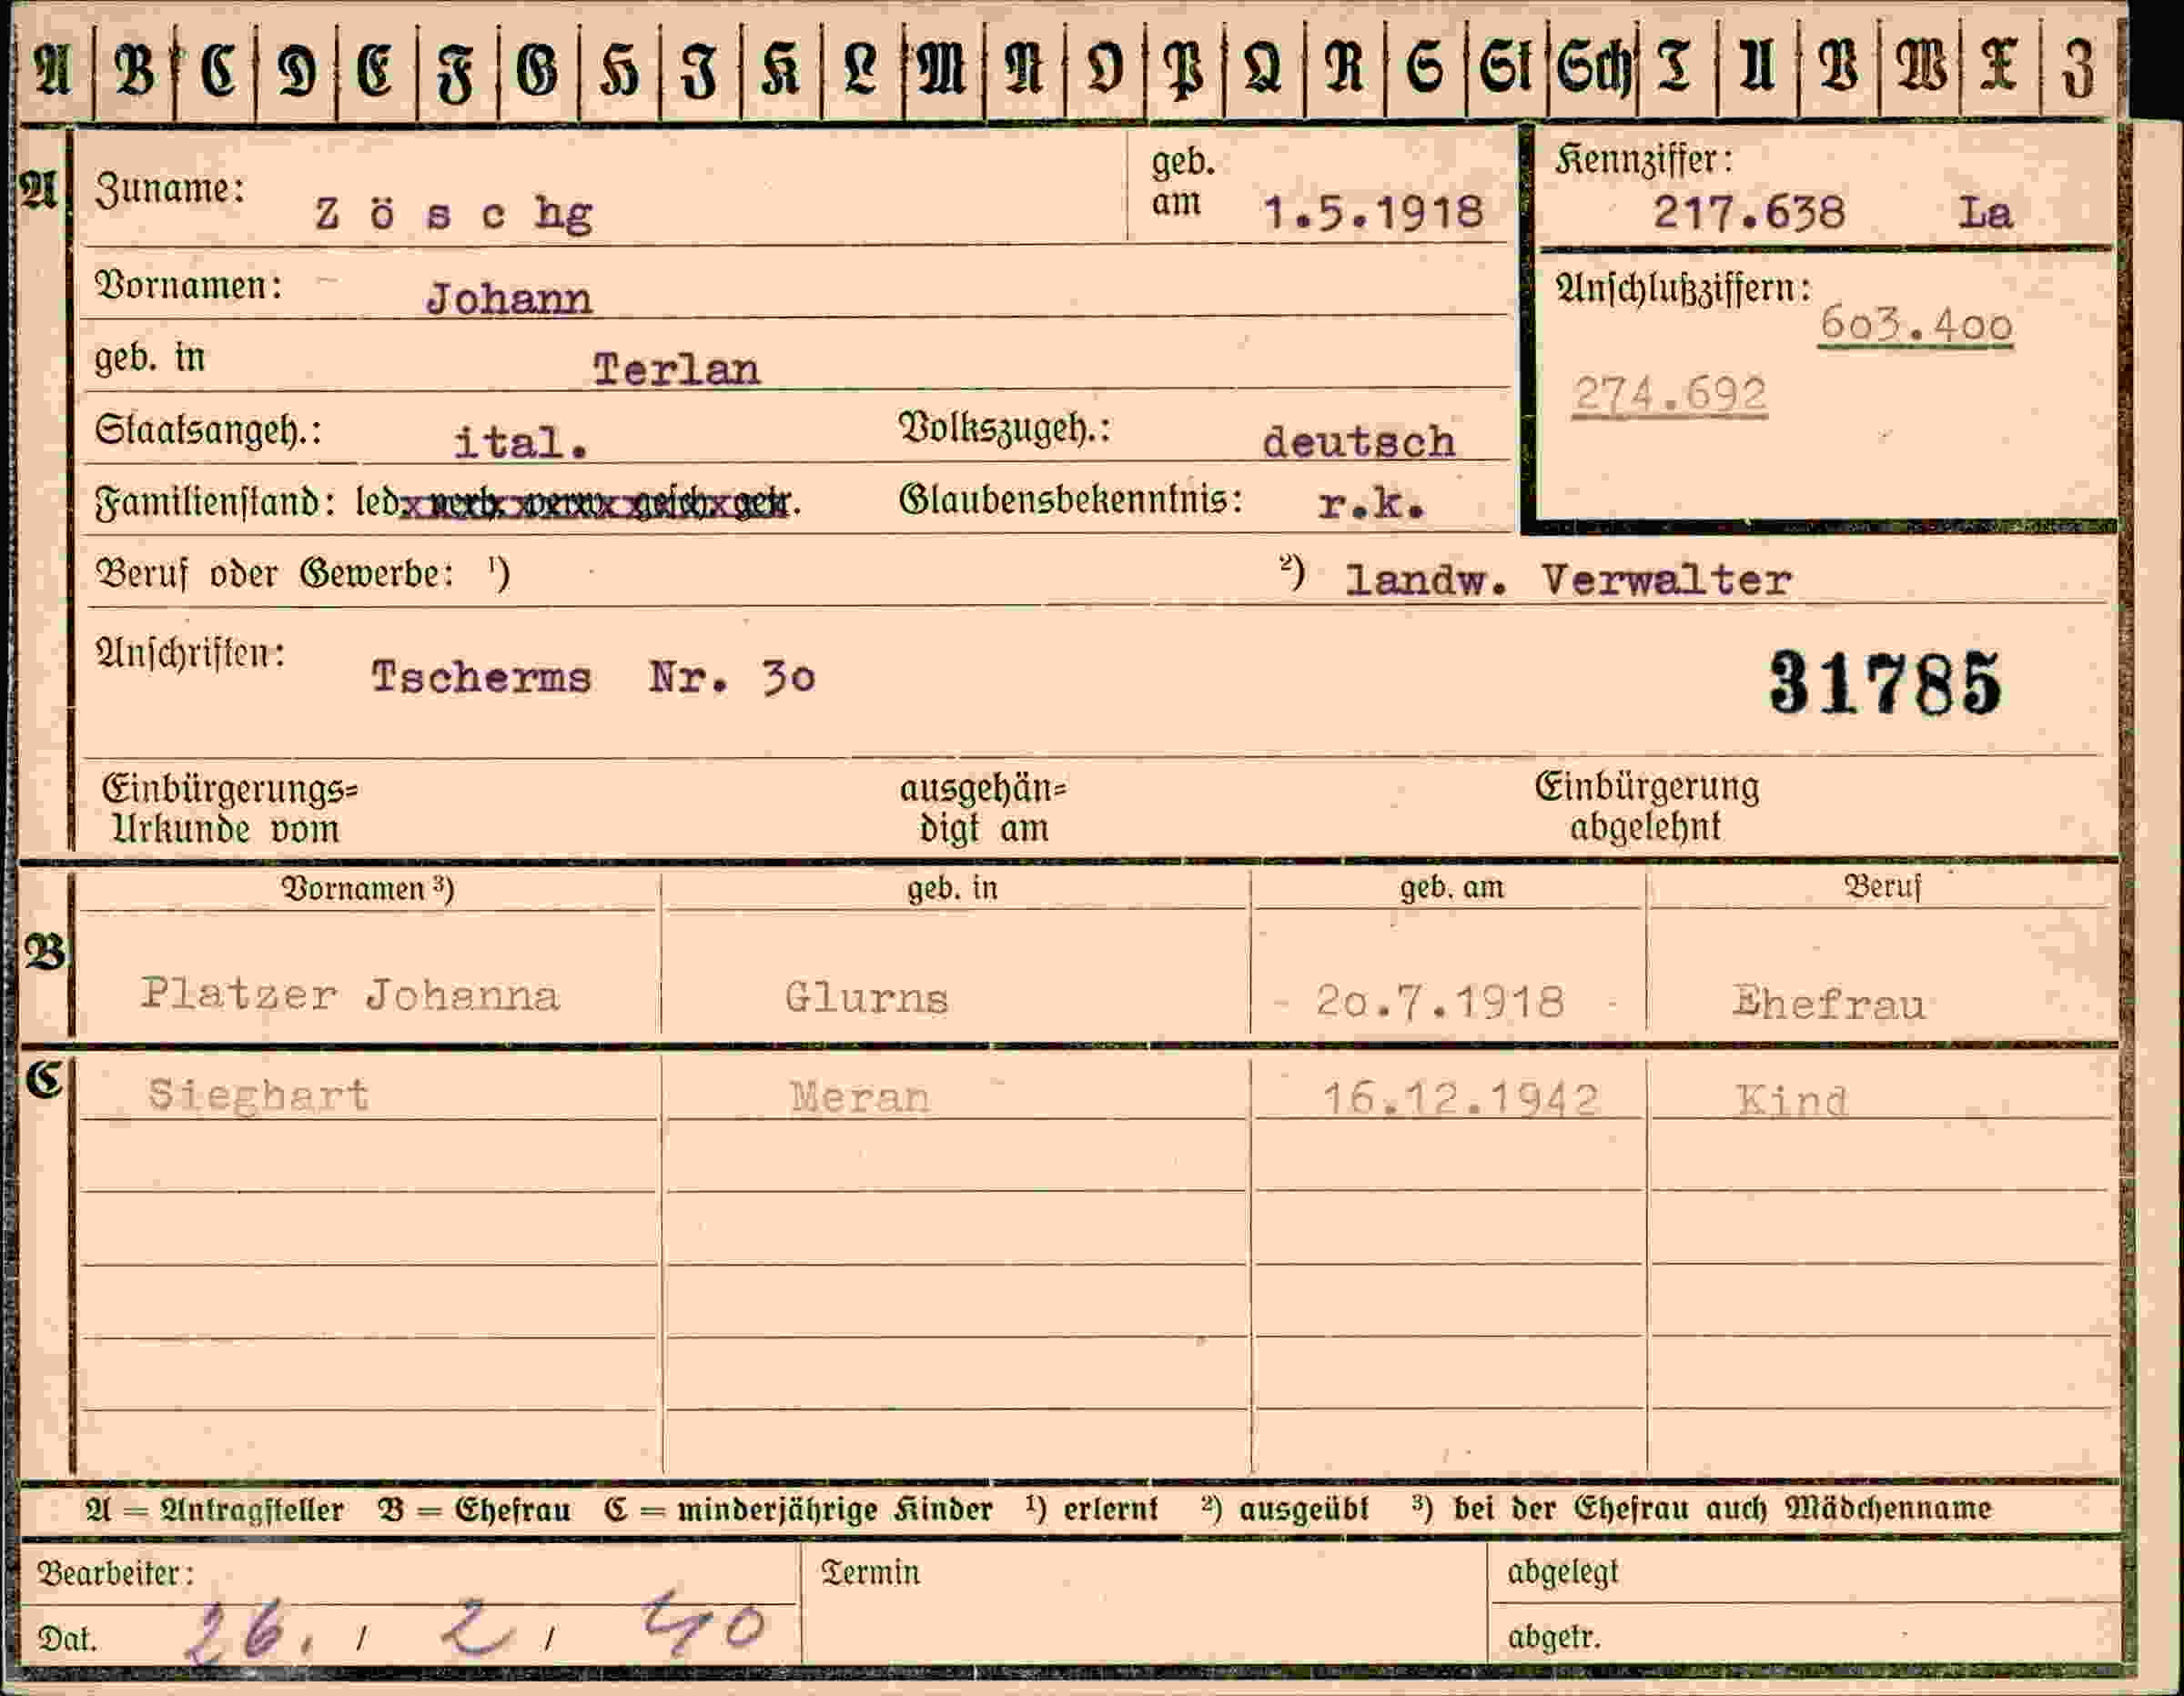 A B C D E F G H I K L M N O P Q R S St Sch T U V W X Z
A Zuname: Z ö s c hg geb. am 1.5.1918 Kennziffer: 217.638 La
Vornamen: Johann Anschlußziffern: 603.400
geb. in Terlan 274.692
Staatsangeh.: ital. Volkszugeh.: deutsch
Familienstand: led. verh. verw. gesch. getr. Glaubensbekenntnis: r.k.
Beruf oder Gewerbe: ¹) ²) landw. Verwalter
Anschriften: Tscherms Nr. 30 31785
Einbürgerungs= ausgehän= Einbürgerung
Urkunde vom digt am abgelehnt
Vornamen ³) geb. in geb. am Beruf
B Platzer Johanna Glurns - 20.7.1918 - Ehefrau
C Sieghart Meran 16.12.1942 Kind
A = Antragsteller B = Ehefrau C = minderjährige Kinder ¹) erlernt ²) ausgeübt ³) bei der Ehefrau auch Mädchenname
Bearbeiter: Termin abgelegt
Dat. 26. / 2 / 40 abgetr.